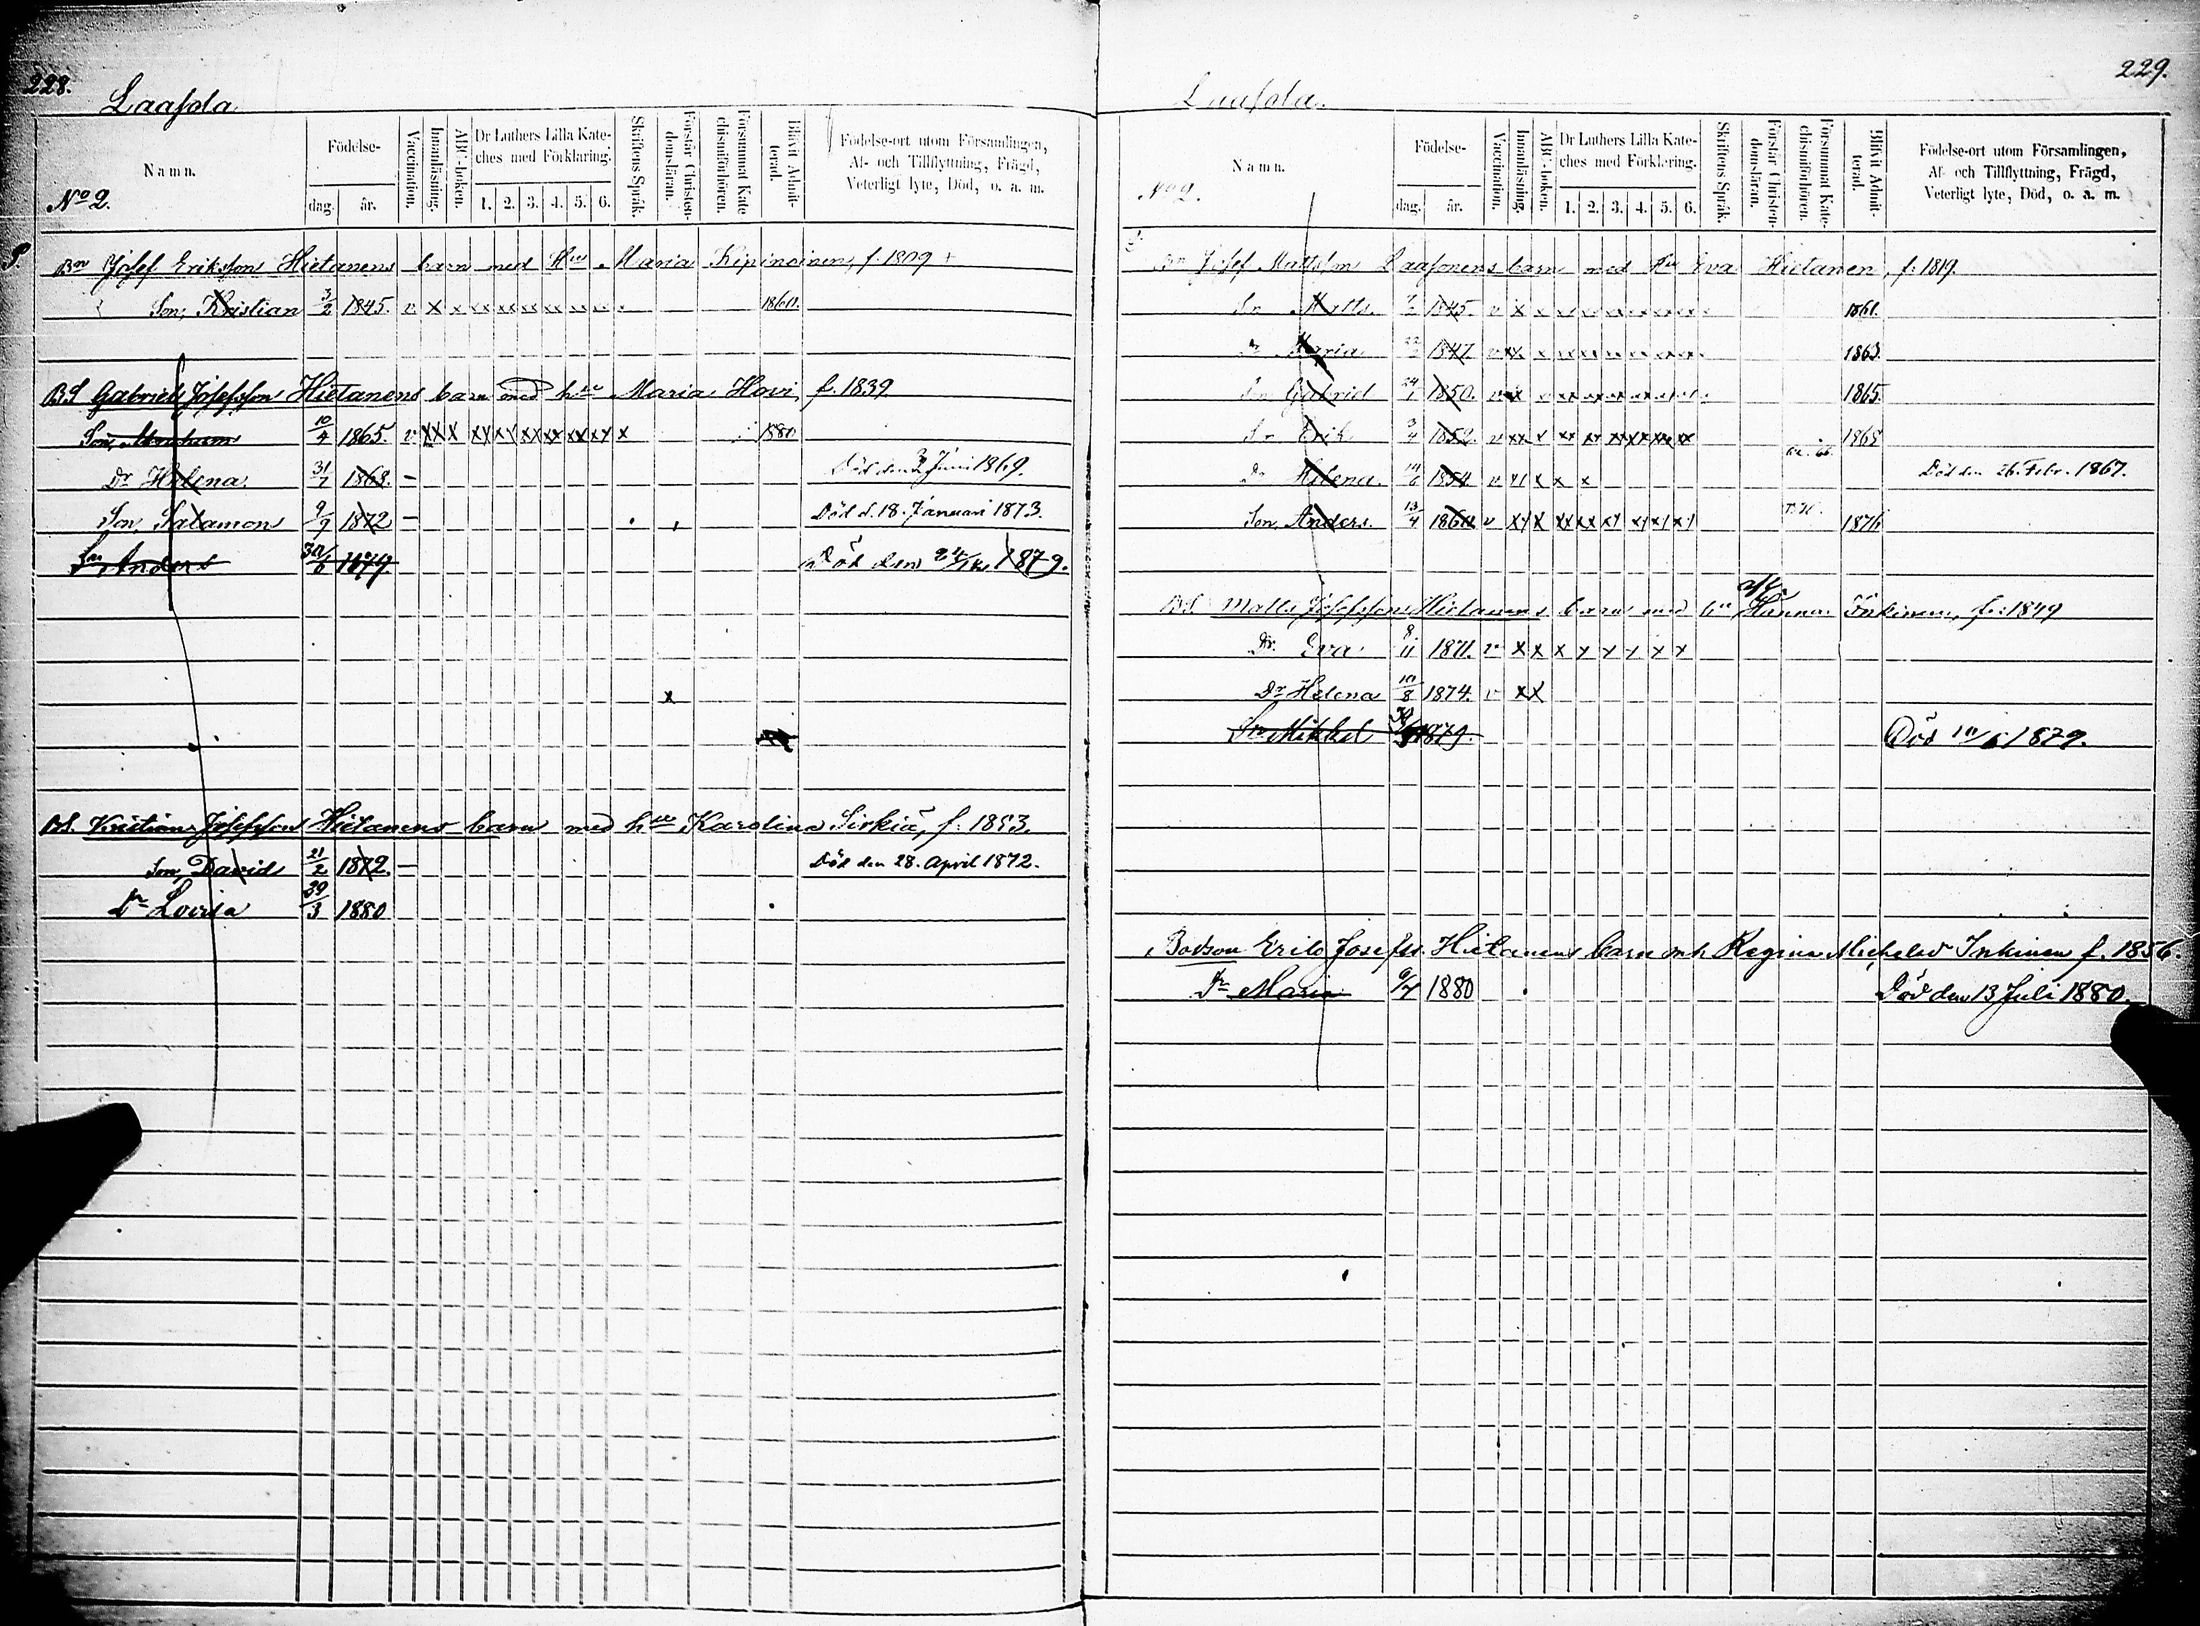 228.
Laasola
Namn.
No 2.
Födelse-
dag. år.
Vaccination.
Innanläsning.
ABC-boken.
Dr Luthers Lilla Kate-
ches med Förklaring.
1. 2. 3. 4. 5. 6.
Skriftens Språk.
Förstår Christen-
domsläran.
Försummat Kate-
chismiförhören.
Blifvit Admit-
terad.
Födelse-ort utom Församlingen,
Af- och Tillflyttning, Frägd,
Veterligt lyte, Död, o. a. m.
Bn Josef Eriksson Hietanens barn med Hu Maria Kipinoinen, f. 1809 +
Son, Kristian 3/2 1845. v x x xx xx xx xx xx xx 1860.
BS Gabriel Josefsson Hietanens barn med hu Maria Hovi, f. 1839.
Son, Abraham 10/4 1865. v xx x xx xx xx xx xx xx x 1880
Dr Helena 31/7 1868. — Död den Juni 1869.
Son, Salamon 9/9 1872 — Död d. 18. Januari 1873.
Sn Anders 30/6 1879 Död den 24/12 1879.
x
BS. Kristian Josefsson Hietanens barn med hu Karolina Sirkiä, f. 1853.
Son, David 21/2 1872. — Död den 28. April 1872.
Dr Lovisa 29/3 1880
229.
Laasola.
Namn.
No 2.
Födelse-
dag. år.
Vaccination.
Innanläsning.
ABC-boken.
Dr Luthers Lilla Kate-
ches med Förklaring.
1. 2. 3. 4. 5. 6.
Skriftens Språk.
Förstår Christen-
domsläran.
Försummat Kate-
chismiförhören.
Blifvit Admit-
terad.
Födelse-ort utom Församlingen,
Af- och Tillflyttning, Frägd,
Veterligt lyte, Död, o. a. m.
Bn Josef Mattsson Laasonens barn med Hu Eva Hietanen, f. 1819.
Sn Matts. 1845. v x x xx xx xx xx xx xx 1861.
Dr Maria 1847. v xx x xx xx xx xx xx xx 1863.
Sn Gabriel 24/1 1850. v xx x xx xx xx xx xx xx 1865.
Sn Erik 3/4 1852. v xx x xx xx xx xx xx xx 1868
Dr Helena. 14/6 1854 v x x x x Död den 26. Febr. 1867.
Son, Anders. 13/4 1860 v xx x xx xx xx xx xx xx 1876
BS. Matts Josefsson Hietanens barn med hu Hanna Inkinen, f. 1849
Dr. Eva 8/11 1871. v x x x x x x x x
Dr Helena 10/8 1874. v xx
Sn Mikkel 1879. Död 10/6 1879.
Bodson Erik Josefss. Hietanens barn m h Regina Michelsd Inkinen f. 1856.
Dr Maria 9/7 1880 Död den 13 Juli 1880.